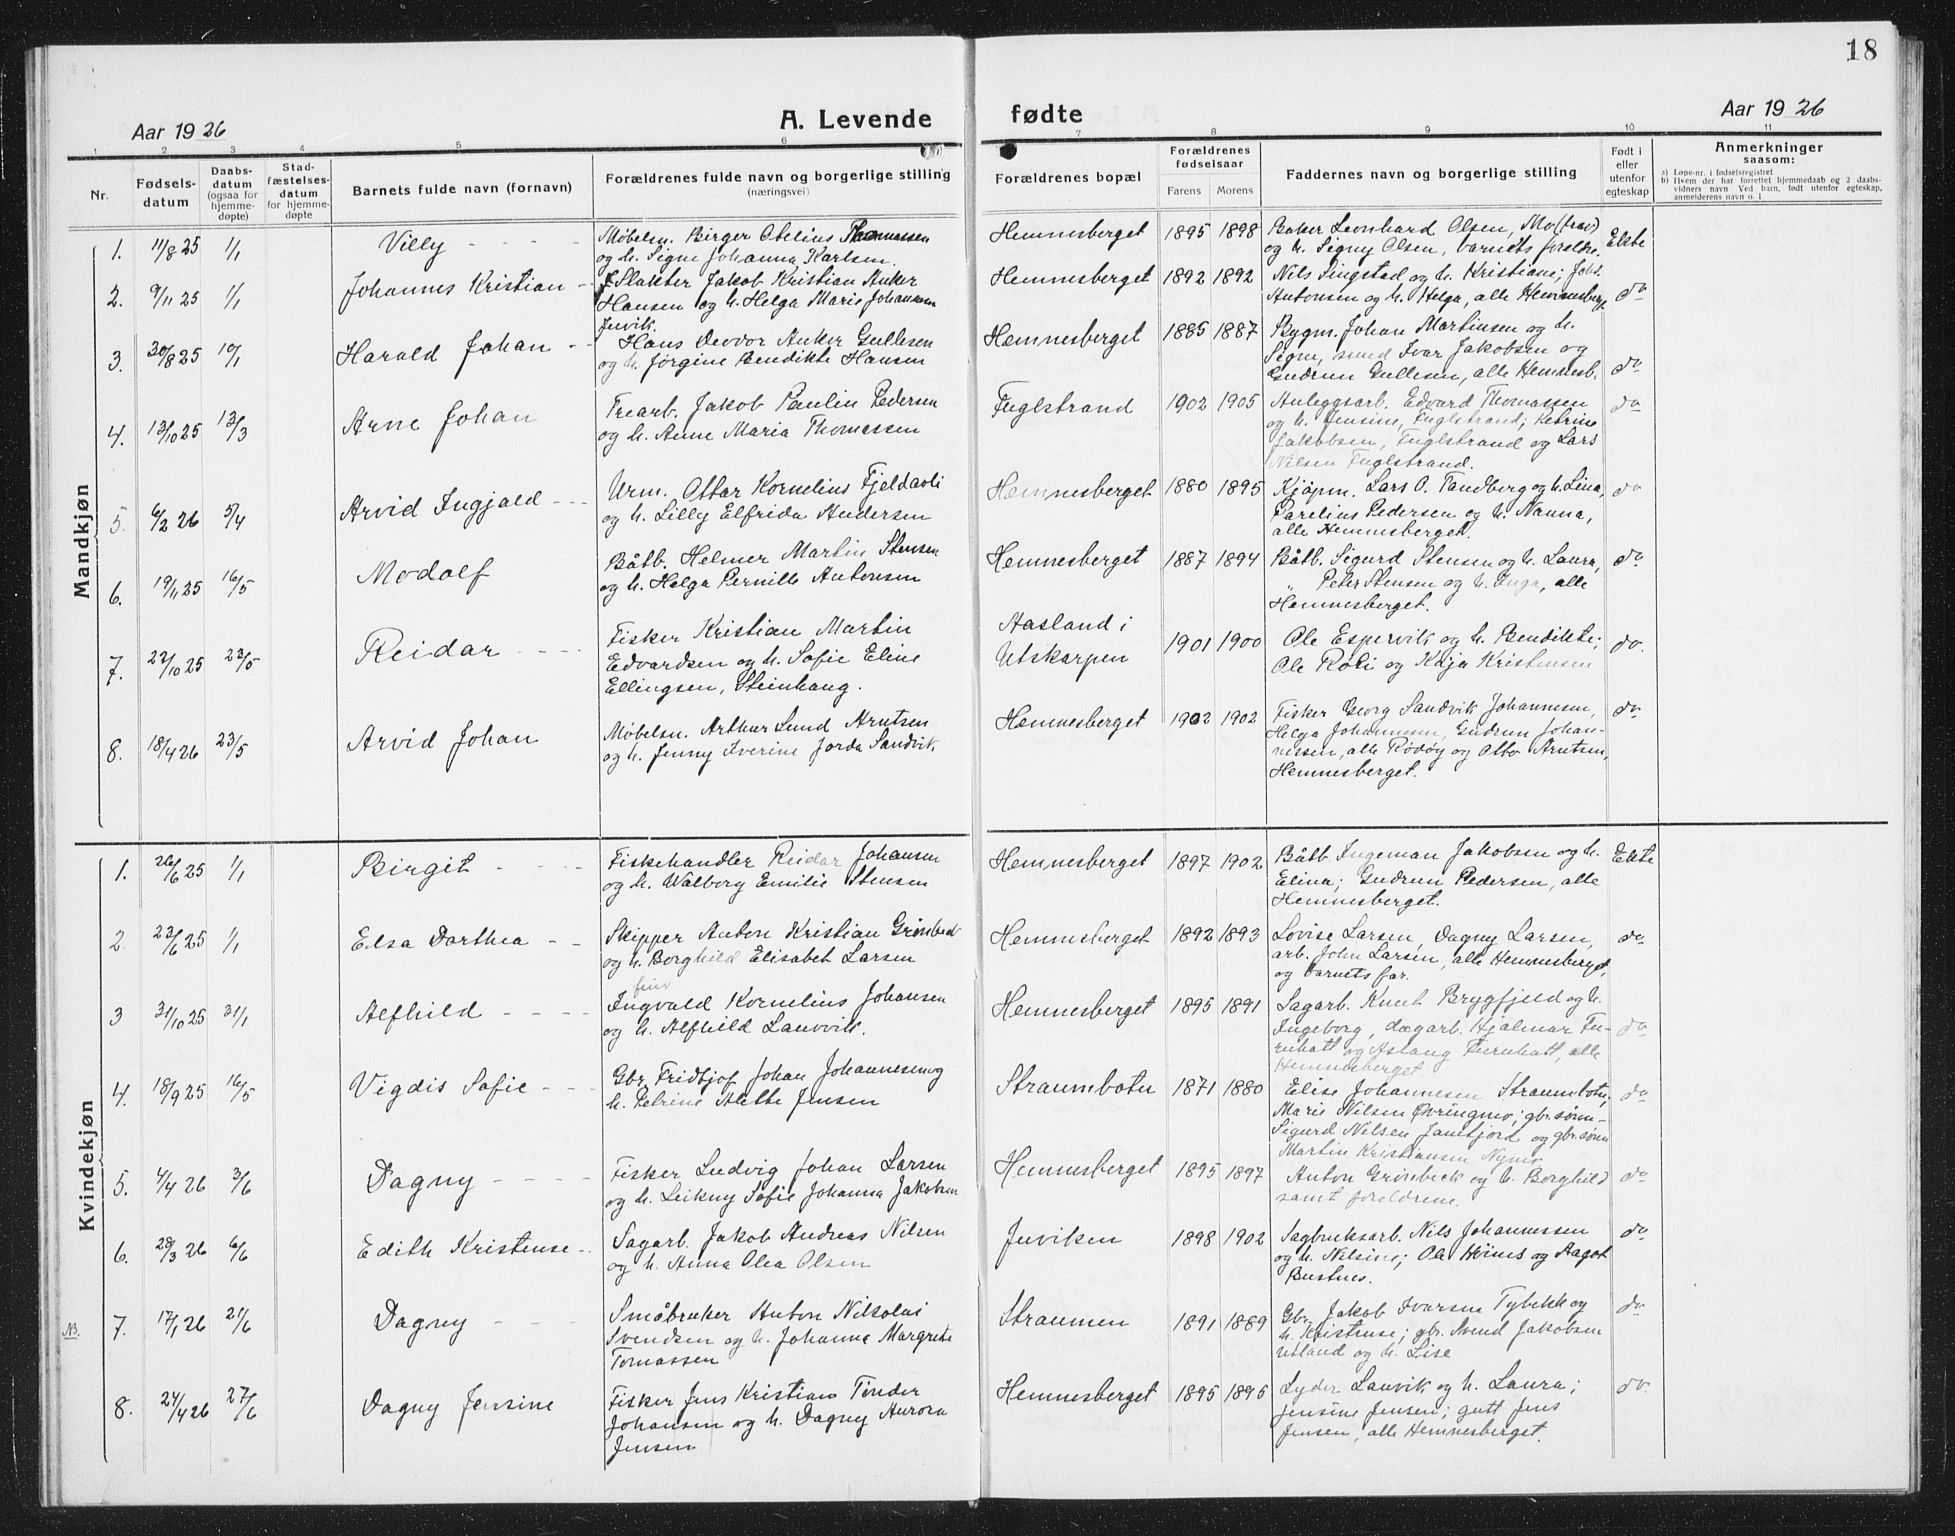 18
Aar 1926
A. Levende fødte
Aar 1926
1 2 3 4 5 6 7 8 9 10 11
Nr.
Fødselsdatum
Daabsdatum (ogsaa for hjemmedøpte)
Stadfæstelsesdatum for hjemmedøpte
Barnets fulde navn (fornavn)
Forældrenes fulde navn og borgerlige stilling
(næringsvei)
Forældrenes bopæl
Forældrenes fødselsaar
Farens Morens
Faddernes navn og borgerlige stilling
Født i eller utenfor egteskap
Anmerkninger
saasom:
a) Løpe-nr. i fødselsregistret
b) Hvem der har forrettet hjemmedaab og 2 daabsvidners navn. Ved barn, født utenfor egteskap, anmelderens navn o. l.
Mandkjøn
1. 11/8 25 1/1 Villy
Møbelsn. Birger Otelius Thomassen
og h. Signe Johanna Karlsen.
Hemnesberget 1895 1898
Baker Leonhard Olsen, Mo (frav)
og h. Signy Olsen, barnets foreldre.
Ekte
2. 9/11 25 1/1 Johannes Kristian
Slakter Jakob Kristian Anker
Hansen og h. Helga Marie Johansen
Juvik.
Hemnesberget 1892 1892
Nils Singstad og h. Kristiane; Johs.
Antonsen og h. Helga, alle Hemnesberg.
do
3. 30/8 25 10/1 Harald Johan
Hans Devor Anker Gullesen
og h. Jørgine Bendikte Hansen
Hemnesberget 1885 1887
Bygm. Johan Martinsen og h.
Signe, smed Ivar Jakobsen og
Gudrun Gullesen, alle Hemnesb.
do
4. 13/10 25 13/3 Arne Johan
Trearb. Jakob Paulin Pedersen
og h. Anne Maria Thomassen
Fuglstrand 1902 1905
Anleggsarb. Edvard Thomassen
og h. Jensine, Fuglstrand; Petrine
Jakobsen, Fuglstrand og Lars
Nilsen Fuglstrand.
do
5. 6/2 26 5/4 Arvid Ingjald
Urm. Ottar Kornelius Fjeldavli
og h. Lilly Elfrida Andersen
Hemnesberget 1880 1895
Kjøpm. Lars O. Tandberg og h. Lina,
Parelius Pedersen og h. Nanna,
alle Hemnesberget.
do
6. 19/11 25 16/5 Modolf
Båtb. Helmer Martin Stensen
og h. Helga Pernille Antonsen
Hemnesberget 1887 1894
Båtb. Sigurd Stensen og h. Laura,
" Peter Stensen og h. Inga, alle
Hemnesberget.
do
7. 22/10 25 22/5 Reidar
Fisker Kristian Martin
Edvardsen og h. Sofie Eline
Ellingsen, Steinhaug.
Aasland i
Utskarpen 1901 1900
Ole Espervik og h. Bendikte;
Ole Røli og Kaja Kristensen
do.
8. 18/4 26 23/5 Arvid Johan
Møbelsn. Arthur Lund Arntsen
og h. Jenny Iverine Jorda Sandvik
Hemnesberget 1902 1902
Fisker Georg Sandvik Johannesen,
Helga Johannesen, Gudrun Johan-
nessen, alle Rødøy og Otto Arntsen,
Hemnesberget.
do
Kvindekjøn
1. 26/6 25 1/1 Birgit
Fiskehandler Reidar Johansen
og h. Walborg Emilie Stensen
Hemnesberget 1897 1902
Båtb. Ingeman Jakobsen og h.
Elina; Gudrun Pedersen, alle
Hemnesberget.
Ekte
2. 23/6 25 1/1 Elsa Dorthea
Skipper Anton Kristian Grønbech
og h. Borghild Elisabet Larsen
Hemnesberget 1892 1893
Lovise Larsen, Dagny Larsen,
arb. John Larsen, alle Hemnesberget,
og barnets far.
do
3 31/10 25 31/1 Alfhild
Ingvald Kornelius Johansen
og h. Alfhild Lauvvik.
Hemnesberget 1895 1891
Sagarb. Knut Brygfjeld og h.
Ingeborg, dagarb. Hjalmar Fu-
ruhatt og Aslaug Furuhatt, alle
Hemnesberget
do
4. 18/9 25 16/5 Vigdis Sofie
Gbr. Fridtjof Johan Johannesen og
h. Petrine Alette Jensen
Straumbotn 1871 1880
Elise Johannesen Straumbotn;
Marie Nilsen Øvringmo; gbr.sønn
Sigurd Nilsen Jamtjord og gbr.sønn
Martin Kristiansen Nymo
do
5. 4/4 26 3/6 Dagny
Fisker Ludvig Johan Larsen
og h. Leikny Sofie Johanna Jakobsen
Hemnesberget 1895 1897
Anton Grønbeck og h. Borghild
samt foreldrene.
do
6. 28/3 26 6/6 Edith Kristense
Sagarb. Jakob Andreas Nilsen
og h. Anna Olea Olsen
Juviken 1898 1902
Sagbruksarb. Nils Johannessen
og h. Nelsine; Ole Høines og Aagot
Bustnes.
do
NB. 7. 17/1 26 21/6 Dagny
Småbruker Anton Nikolai
Svendsen og h. Johanna Margrete
Tomassen
Straumen 1891 1889
Gbr. Jakob Ivarsen Tybekk og
h. Kristense; gbr. Svend Jakobsen
Utland og h. Lise
do
8. 24/4 26 27/6 Dagny Jensine
Fisker Jens Kristian Tinder
Johansen og h. Dagny Aurora
Jensen
Hemnesberget 1895 1895
Lyder Lauvik og h. Laura;
Jensine Jensen; gutt Jens
Jensen, alle Hemnesberget.
do.